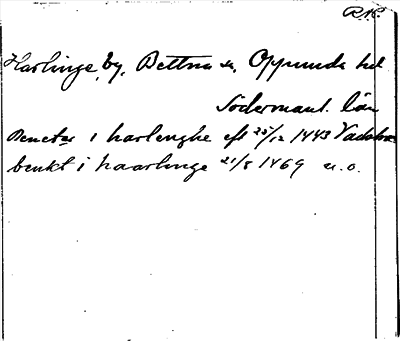 R.K.
Harlinge, by, Bettna sn, Oppunda hd
Södermanl. län
Benctæ i harlenghe eft 25/12 1443 Vadstena
benkt i haarlinge 21/8 1469 u.o.